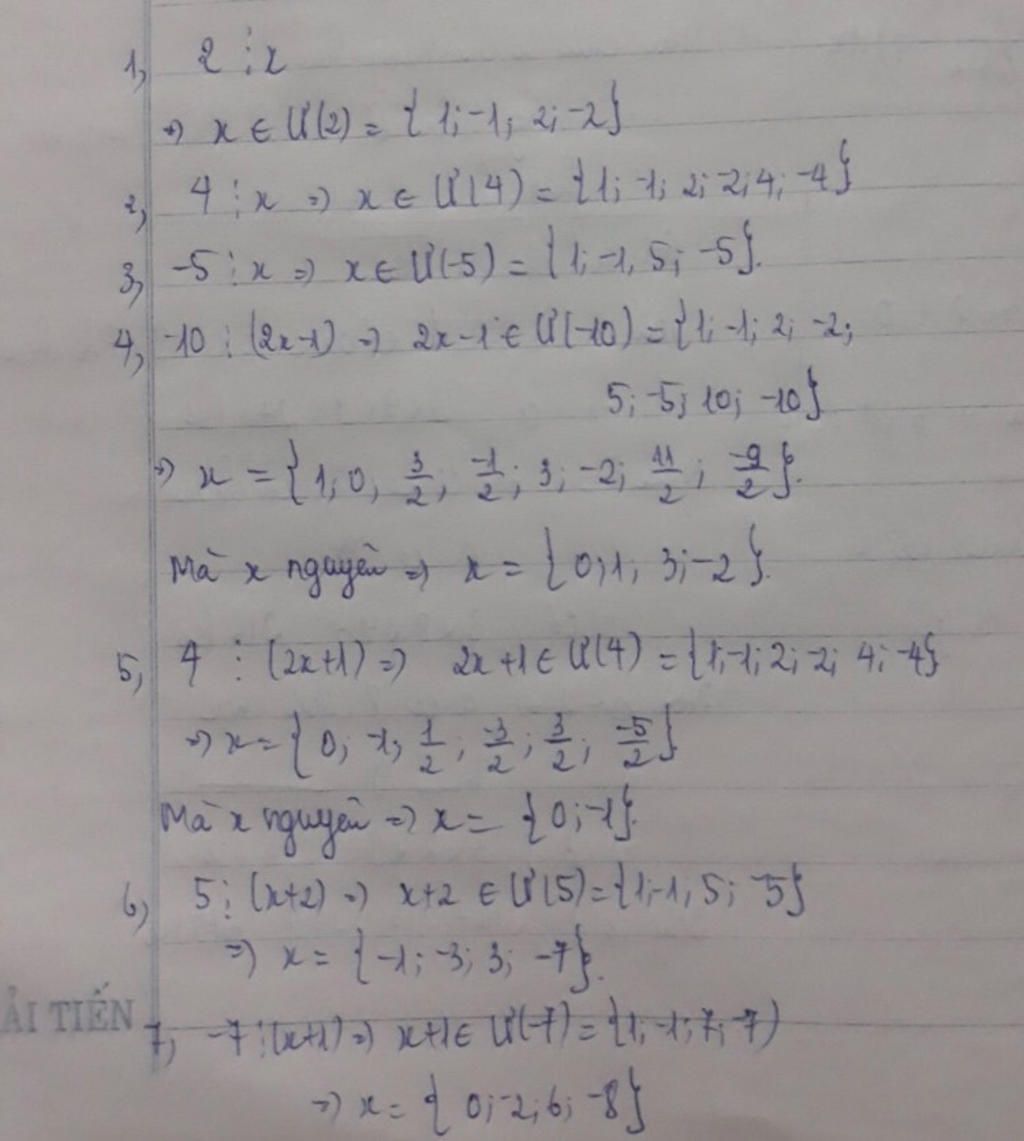 1, 2 ⋮ x
=> x ∈ Ư(2) = {1; -1; 2; -2}
2, 4 ⋮ x => x ∈ Ư(4) = {1; -1; 2; -2; 4; -4}
3, -5 ⋮ x => x ∈ Ư(-5) = {1; -1, 5; -5}.
4, -10 ⋮ (2x-1) => 2x-1 ∈ Ư(-10) = {1; -1; 2; -2;
5; -5; 10; -10}
=> x = {1, 0, 3/2, -1/2; 3; -2; 11/2; -9/2}.
Mà x nguyên => x = {0; 1; 3; -2}.
5, 4 ⋮ (2x+1) => 2x+1 ∈ Ư(4) = {1; -1; 2; -2; 4; -4}
=> x = {0; -1, 1/2; -3/2; 3/2; -5/2}
Mà x nguyên => x = {0; -1}.
6, 5 ⋮ (x+2) => x+2 ∈ Ư(5) = {1; -1, 5; -5}
=> x = {-1; -3; 3; -7}.
ẢI TIẾN
7, -7 ⋮ (x+1) => x+1 ∈ Ư(-7) = {1; -1; 7; -7)
=> x = {0; -2; 6; -8}